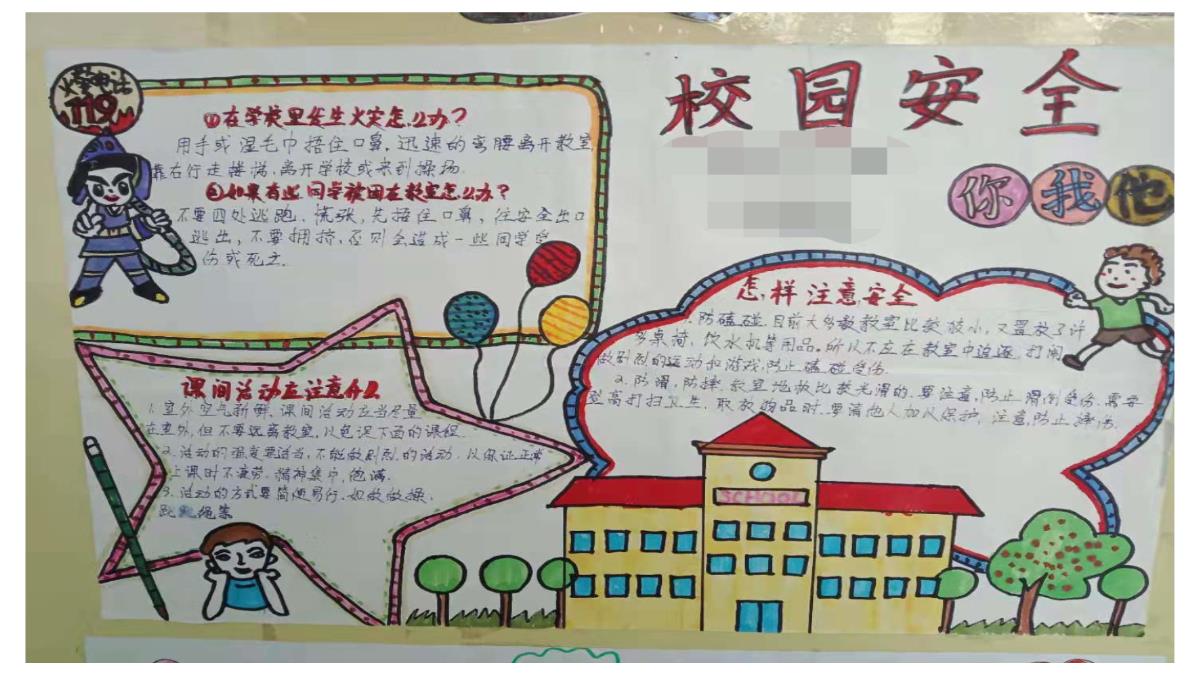 校园安全
你我他
火警电话
119
①在学校里发生火灾怎么办？
用手或湿毛巾捂住口鼻，迅速的弯腰离开教室，
靠右行走楼梯，离开学校或来到操场.
②如果有些同学被困在教室怎么办？
不要四处逃跑、慌张，先捂住口鼻，往安全出口
逃出，不要拥挤，否则会造成一些同学受
伤或死亡.
怎样注意安全
防磕碰.目前大多数教室比较狭小，又置放了许
多桌椅、饮水机等用品。所以不应在教室中追逐、打闹
做剧烈的运动和游戏，防止磕碰受伤.
2.防滑，防摔.教室地板比较光滑的.要注意，防止滑倒受伤.需要
登高打扫卫生.取放物品时.要请他人加以保护，注意，防止摔伤.
课间活动应注意什么
1.室外空气新鲜、课间活动应当尽量
在室外，但不要远离教室，以免误下面的课程
2.活动的强度要适当，不能做剧烈的活动.以保证正常
上课时不疲劳.精神集中，饱满.
3.活动的方式要简便易行.如做做操.
跳绳等
SCHOOL